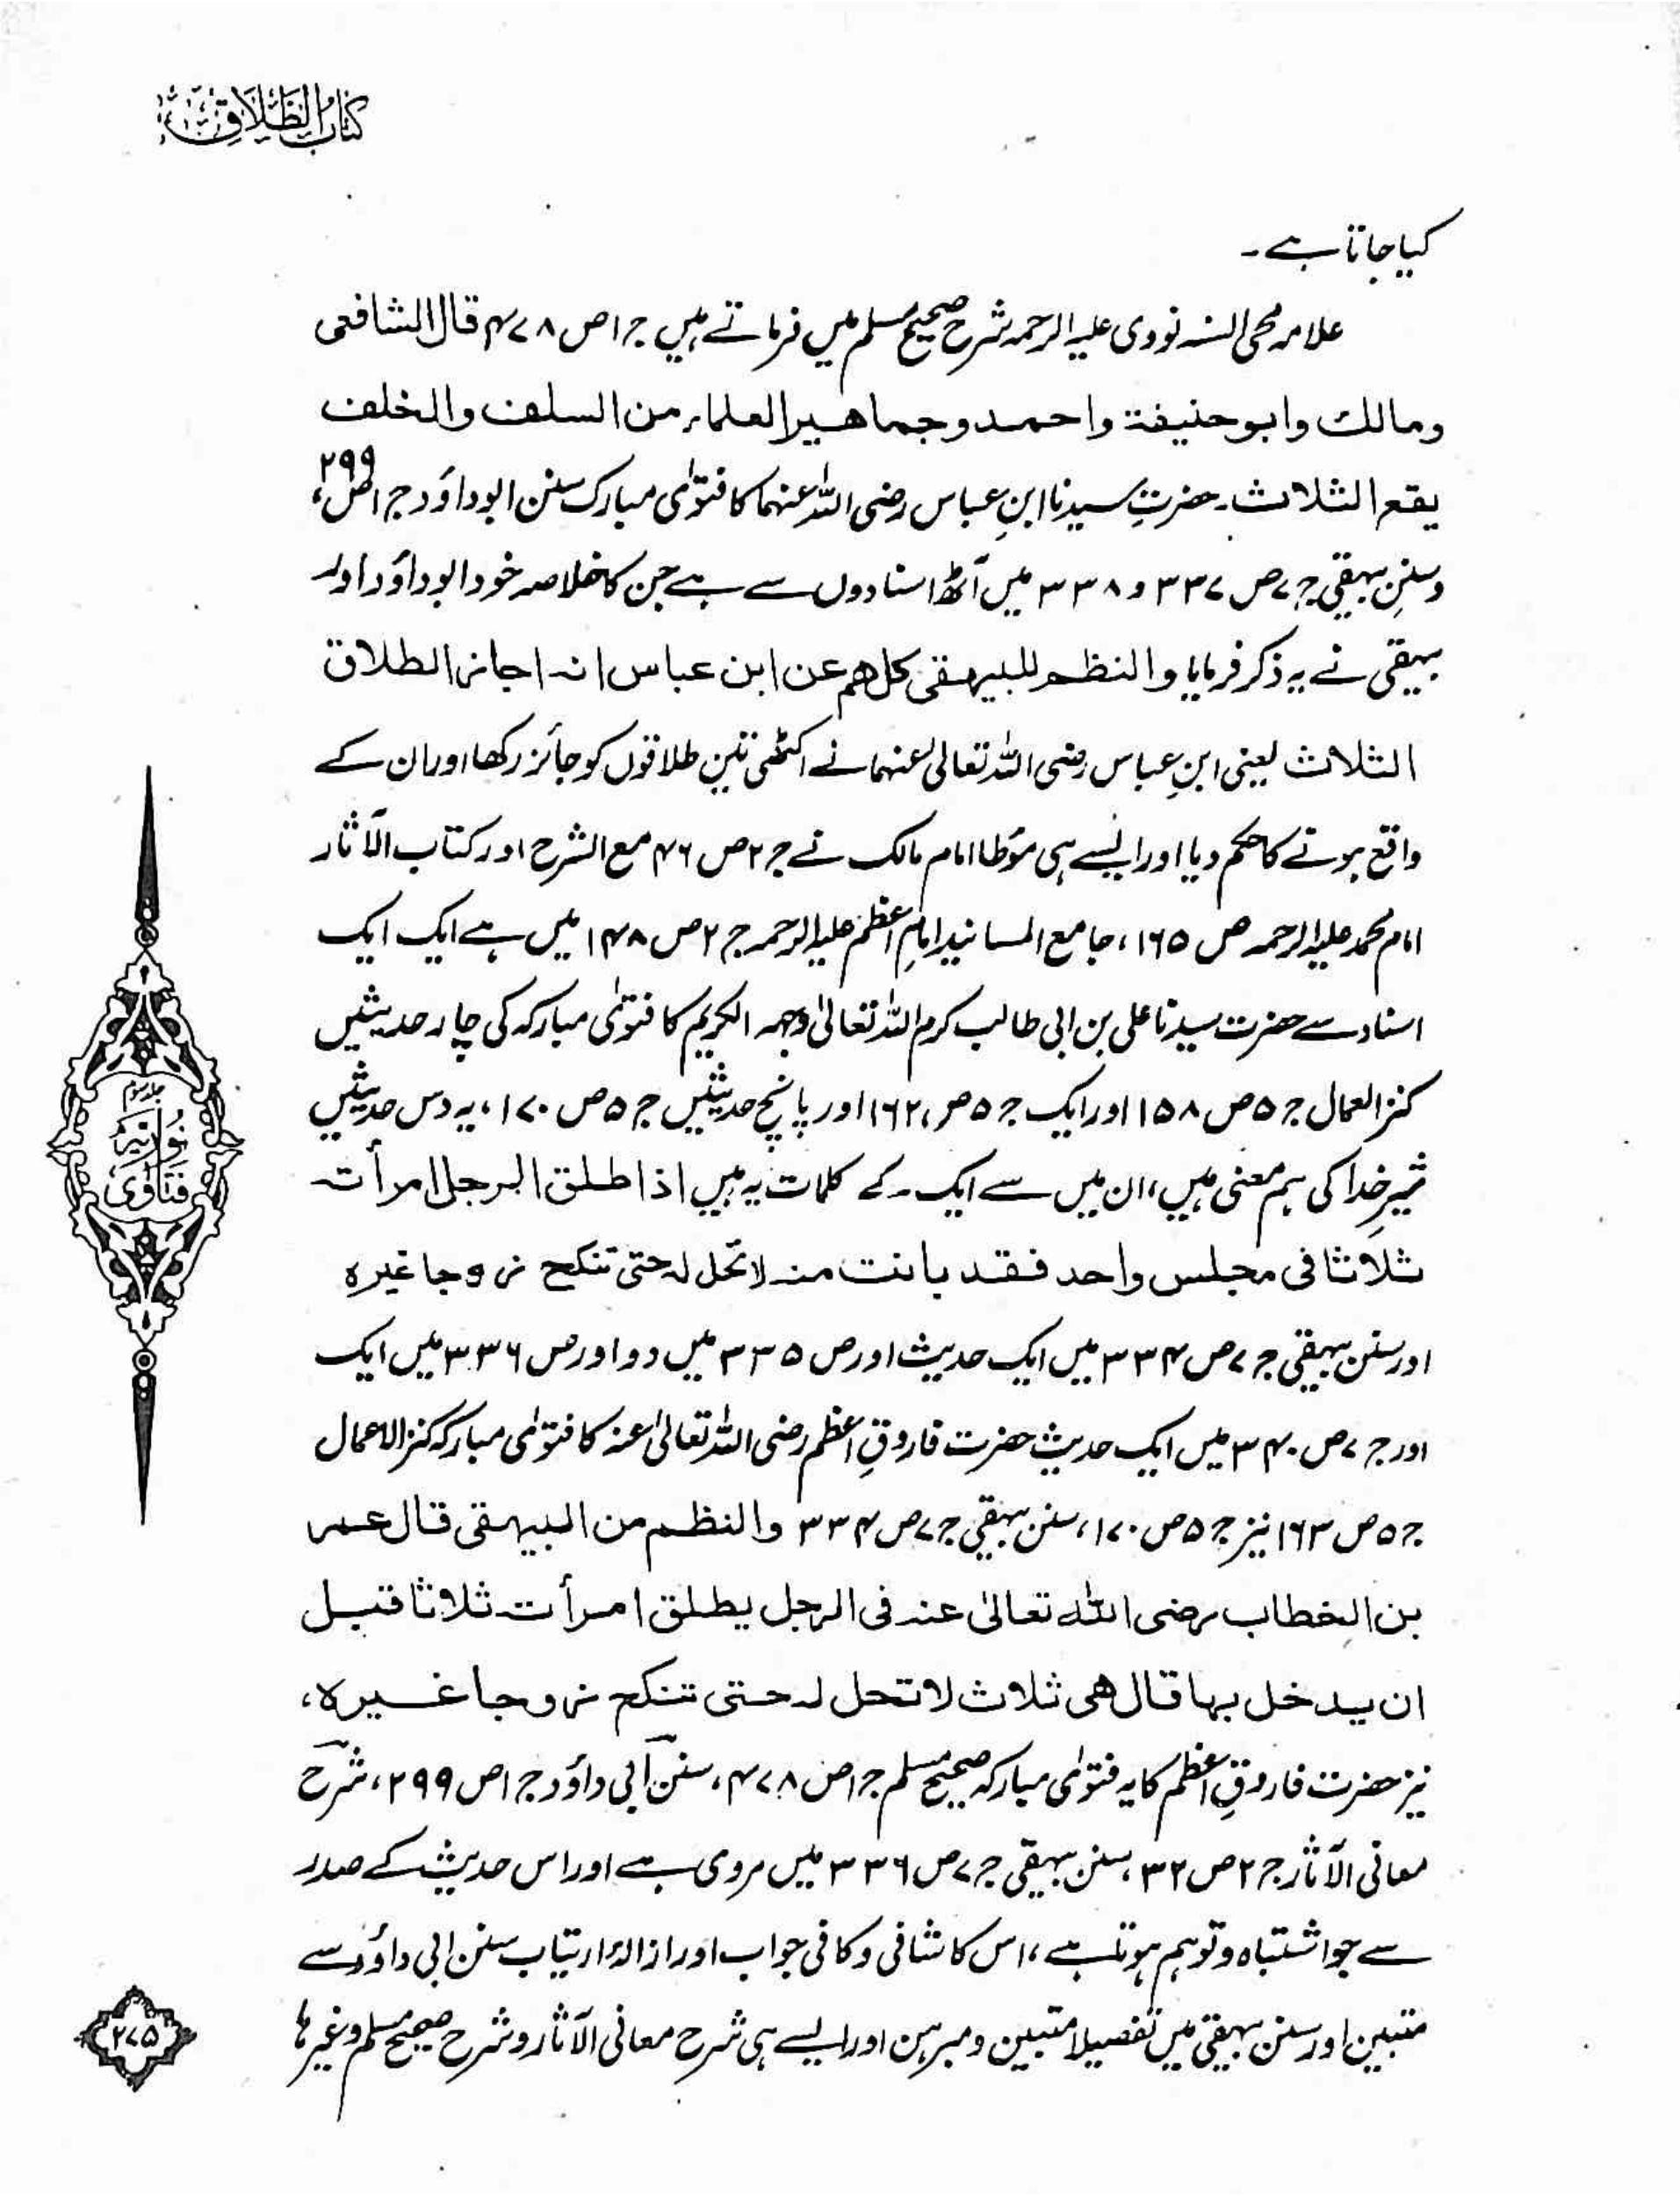 کتاب الطلاق
کیا جاتا ہے۔
علامہ محی السنہ نووی علیہ الرحمہ شرح صحیح مسلم میں فرماتے ہیں ج ۱ ص ۴۷۸ قال الشافعی
ومالك وابو حنیفۃ واحمد وجماھیر العلماء من السلف والخلف
یقع الثلاث۔ حضرتِ سیدنا ابنِ عباس رضی اللہ عنہما کا فتوٰی مبارک سنن ابوداؤد ج ۱ ص ۲۹۹،
وسننِ بیہقی ج ۷ ص ۳۳۷ و ۳۳۸ میں آٹھ اسنادوں سے ہے جن کا خلاصہ خود ابوداؤد اور
بیہقی نے یہ ذکر فرمایا والنظم للبیہقی کلھم عن ابن عباس انہ اجاز الطلاق
الثلاث یعنی ابنِ عباس رضی اللہ تعالیٰ عنہما نے اکٹھی تین طلاقوں کو جائز رکھا اور ان کے
واقع ہونے کا حکم دیا اور ایسے ہی مؤطا امام مالک نے ج ۲ ص ۴۶ مع الشرح اور کتاب الآثار
امام محمد علیہ الرحمہ ص ۱۶۵، جامع المسانید امامِ اعظم علیہ الرحمہ ج ۲ ص ۱۴۸ میں ہے ایک ایک
اسناد سے حضرت سیدنا علی بن ابی طالب کرم اللہ تعالیٰ وجہہ الکریم کا فتوٰی مبارکہ کی چار حدیثیں
کنز العمال ج ۵ ص ۱۵۸ اور ایک ج ۵ ص ۱۶۲، اور پانچ حدیثیں ج ۵ ص ۱۷۰، یہ دس حدیثیں
شیرِ خدا کی ہم معنی ہیں، ان میں سے ایک کے کلمات یہ ہیں اذا طلق الرجل امرأتہ
ثلاثا فی مجلس واحد فقد بانت منہ لا تحل لہ حتی تنکح زوجا غیرہ
اور سنن بیہقی ج ۷ ص ۳۳۴ میں ایک حدیث اور ص ۳۳۵ میں دو اور ص ۳۳۶ میں ایک
اور ج ۷ ص ۳۴۰ میں ایک حدیث حضرت فاروقِ اعظم رضی اللہ تعالیٰ عنہ کا فتوٰی مبارکہ کنز الاعمال
ج ۵ ص ۱۶۳ نیز ج ۵ ص ۱۷۰، سنن بیہقی ج ۷ ص ۳۳۴ والنظم من البیہقی قال عمر
بن الخطاب رضی اللہ تعالیٰ عنہ فی الرجل یطلق امرأتہ ثلاثا قبل
ان یدخل بہا قال ھی ثلاث لا تحل لہ حتی تنکح زوجا غیرہ،
نیز حضرت فاروقِ اعظم کا یہ فتوٰی مبارکہ صحیح مسلم ج ۱ ص ۴۷۸، سنن ابی داؤد ج ۱ ص ۲۹۹، شرح
معانی الآثار ج ۲ ص ۳۲، سنن بیہقی ج ۷ ص ۳۳۶ میں مروی ہے اور اس حدیث کے صدر
سے جو اشتباہ وتوہم ہوتا ہے، اس کا شافی و کافی جواب اور ازالۂ ارتیاب سنن ابی داؤد سے
متبین اور سنن بیہقی میں تفصیلا متبین ومبرہن اور ایسے ہی شرح معانی الآثار وشرح صحیح مسلم وغیرہا
جلد سوم
نوریہ
فتاوٰی
۲۷۵